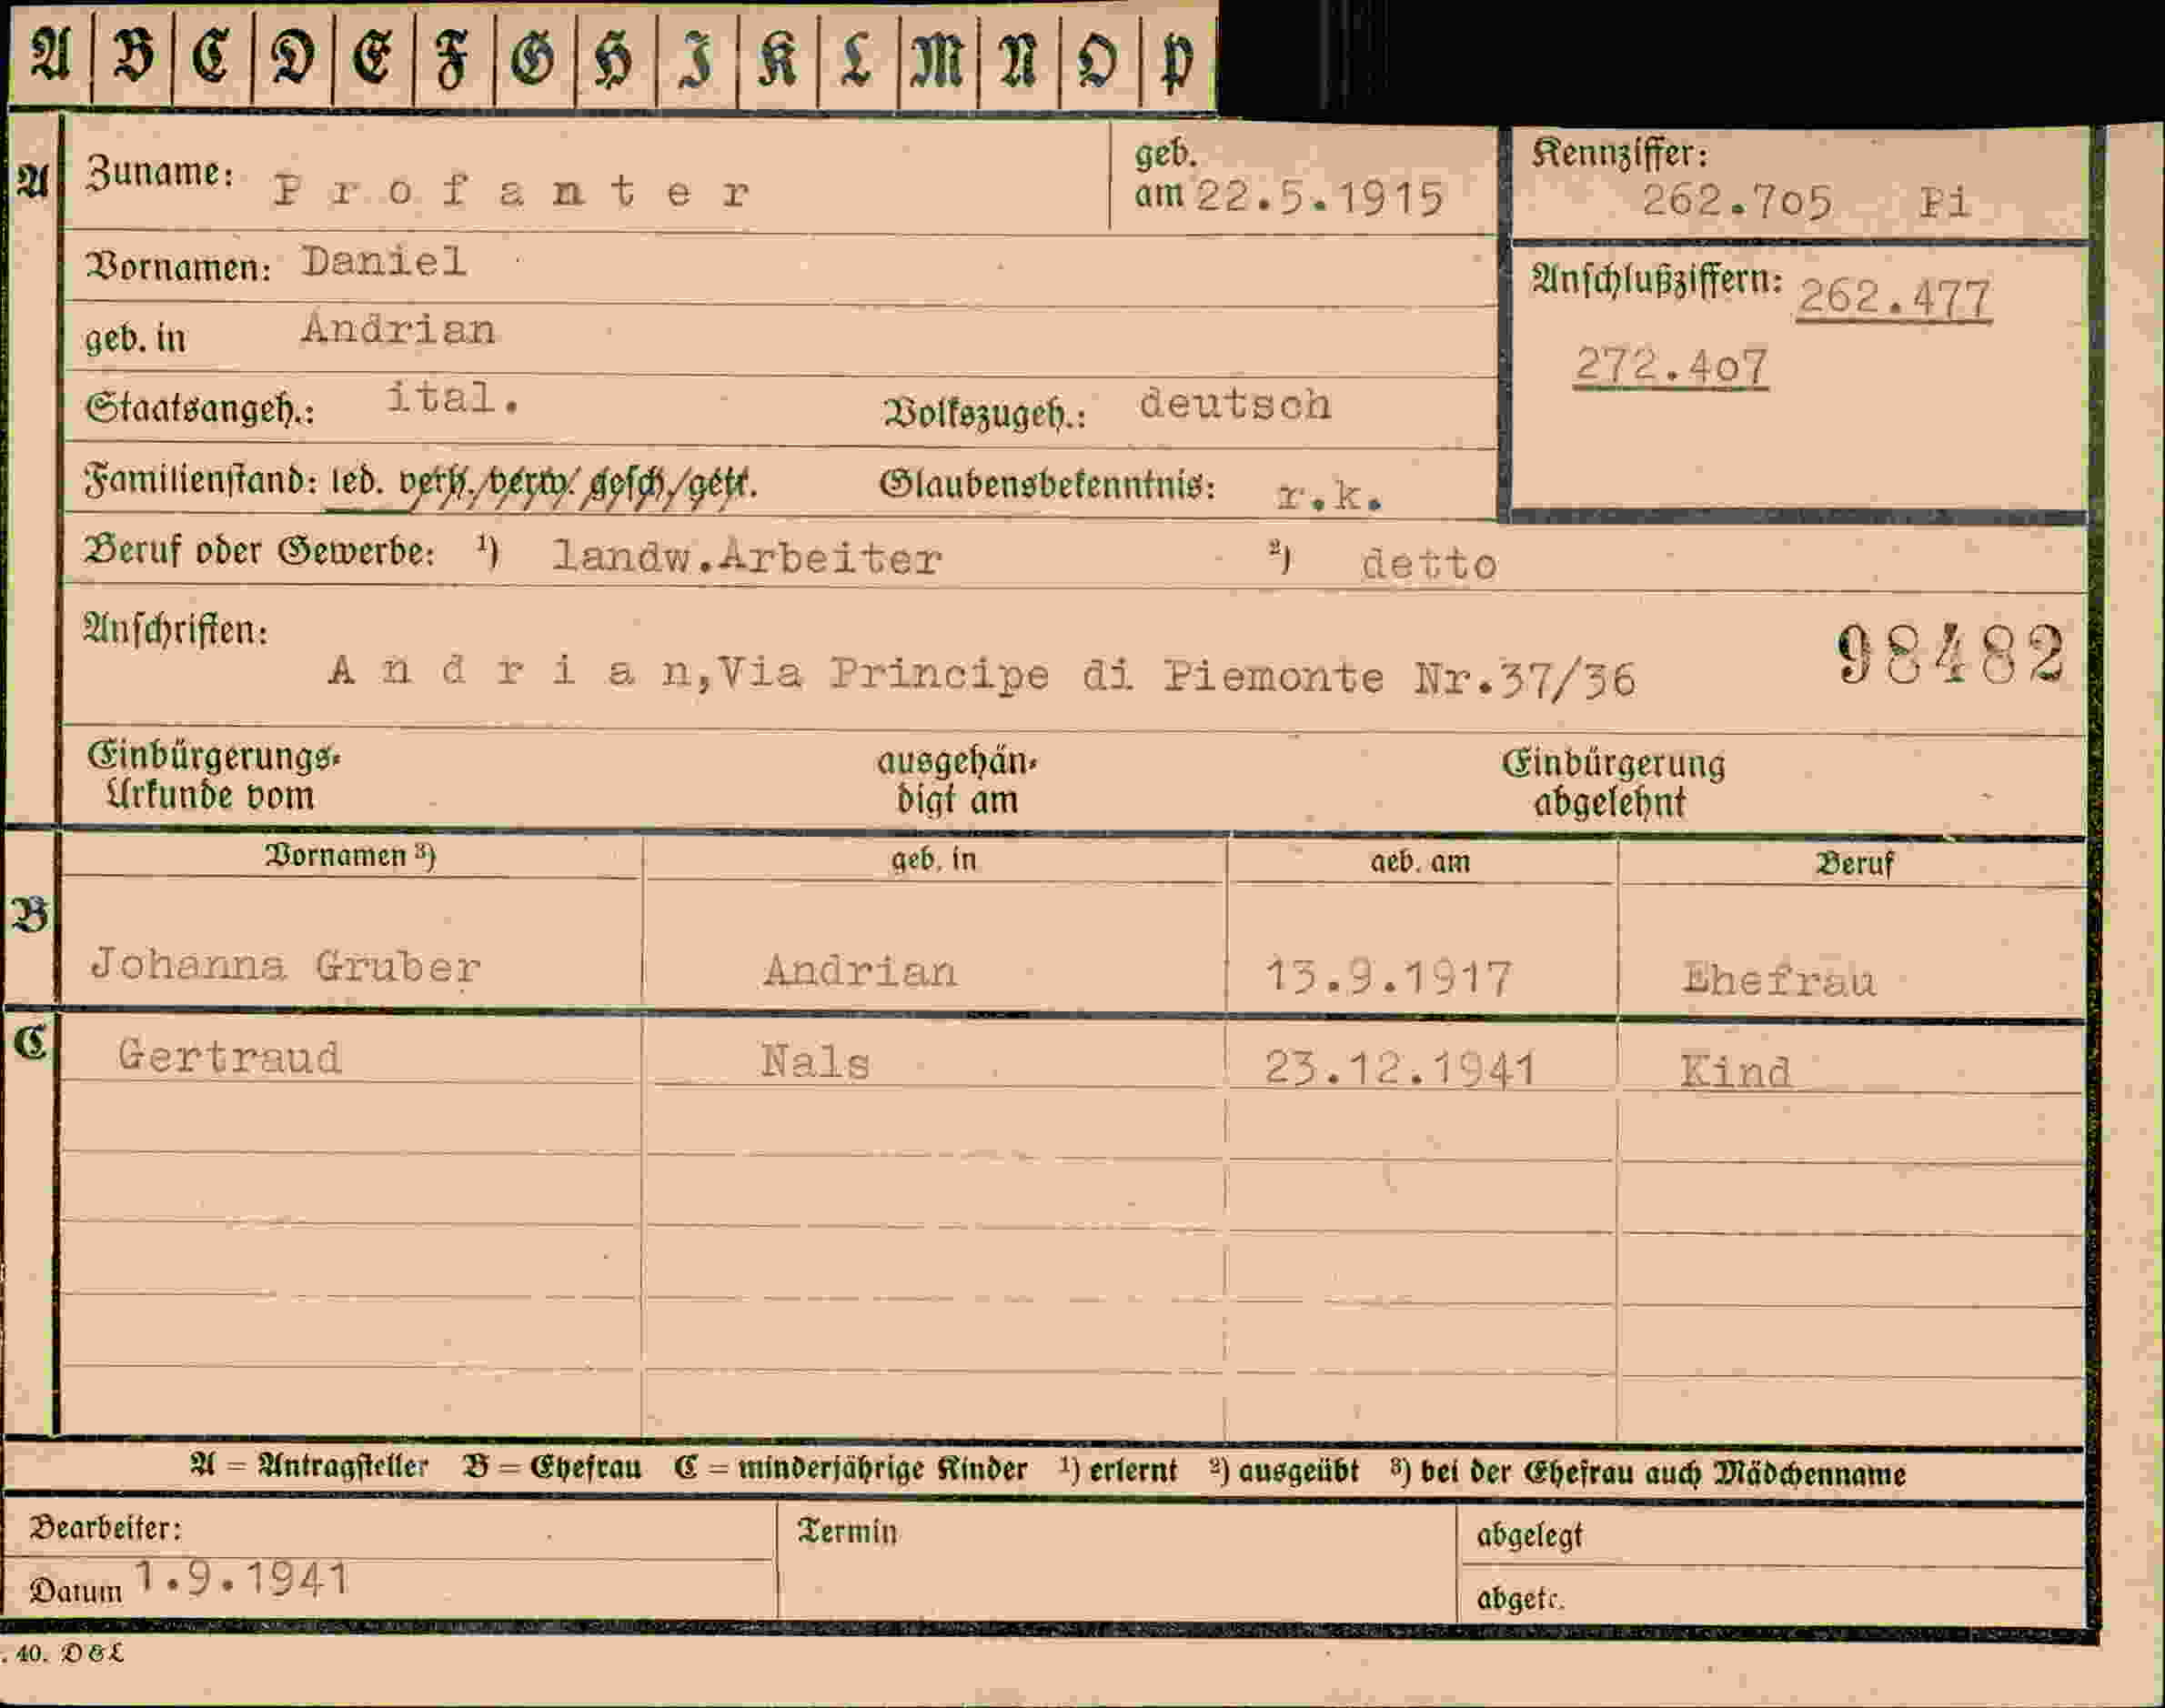 A B C D E F G H I K L M N O P
A Zuname: Profanter geb. am 22.5.1915 Kennziffer: 262.705 Pi
Vornamen: Daniel Anschlußziffern: 262.477
geb. in Andrian 272.407
Staatsangeh.: ital. Volkszugeh.: deutsch
Familienstand: led. verh./verw./gesch./getr. Glaubensbekenntnis: r.k.
Beruf oder Gewerbe: ¹) landw.Arbeiter ²) detto
Anschriften:
Andrian,Via Principe di Piemonte Nr.37/36 98482
Einbürgerungs- ausgehän- Einbürgerung
Urkunde vom digt am abgelehnt
Vornamen ³) geb. in geb. am Beruf
B Johanna Gruber Andrian 13.9.1917 Ehefrau
C Gertraud Nals 23.12.1941 Kind
A = Antragsteller B = Ehefrau C = minderjährige Kinder ¹) erlernt ²) ausgeübt ³) bei der Ehefrau auch Mädchenname
Bearbeiter: Termin abgelegt
Datum 1.9.1941 abgetr.
. 40. D&L